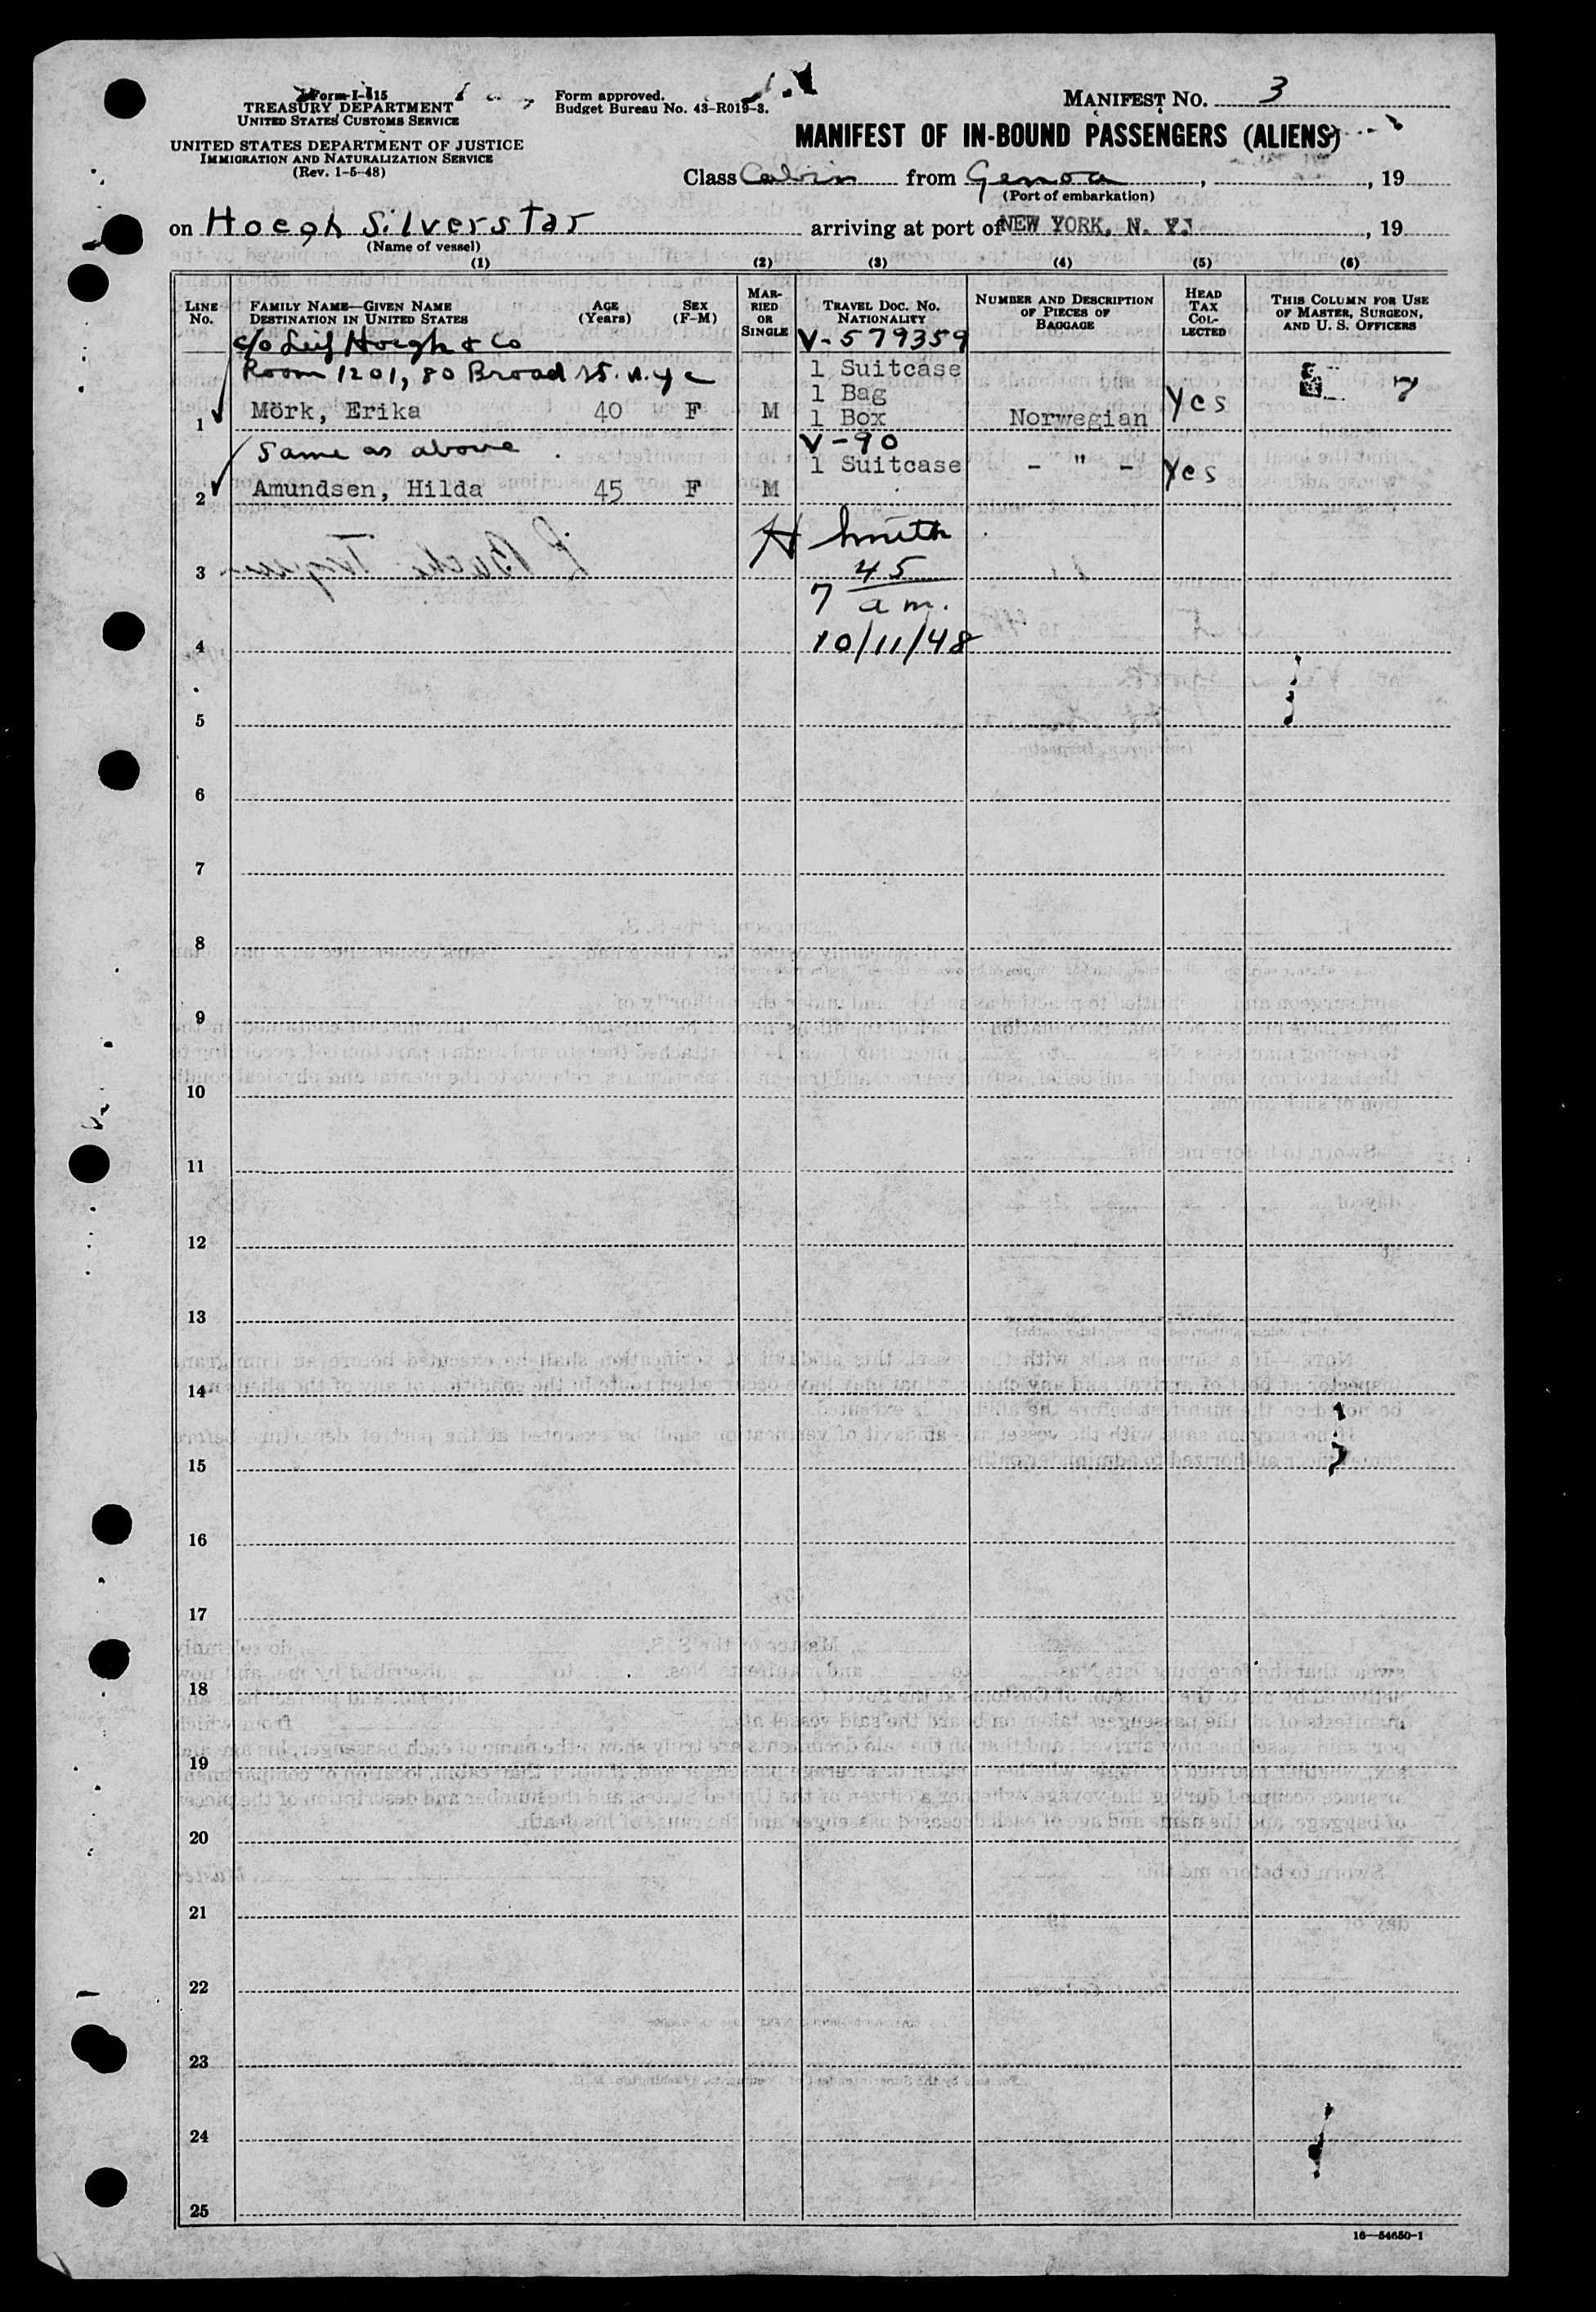 Form I-415
TREASURY DEPARTMENT
UNITED STATES CUSTOMS SERVICE
UNITED STATES DEPARTMENT OF JUSTICE
IMMIGRATION AND NATURALIZATION SERVICE
(Rev. 1-5-48)
Form approved.
Budget Bureau No. 43-R019-3.
MANIFEST No. 3
MANIFEST OF IN-BOUND PASSENGERS (ALIENS)
Class Cabin from Genoa, , 19
(Port of embarkation)
on Hoegh Silverstar arriving at port of NEW YORK, N. Y. , 19
(Name of vessel)
(1) (2) (3) (4) (5) (6)
LINE No. FAMILY NAME—GIVEN NAME DESTINATION IN UNITED STATES AGE (Years) SEX (F-M) MARRIED OR SINGLE TRAVEL DOC. NO. NATIONALITY NUMBER AND DESCRIPTION OF PIECES OF BAGGAGE HEAD TAX COLLECTED THIS COLUMN FOR USE OF MASTER, SURGEON, AND U. S. OFFICERS
c/o Leif Hoegh & Co V-579359
Room 1201, 80 Broad St. N.Y.C 1 Suitcase
1 Bag Yes 7
1 Mörk, Erika 40 F M 1 Box Norwegian
Same as above V-90
1 Suitcase - " - Yes
2 Amundsen, Hilda 45 F M
H Smith
3 45
7 a m.
4 10/11/48
5
6
7
8
9
10
11
12
13
14
15
16
17
18
19
20
21
22
23
24
25
16—54650-1